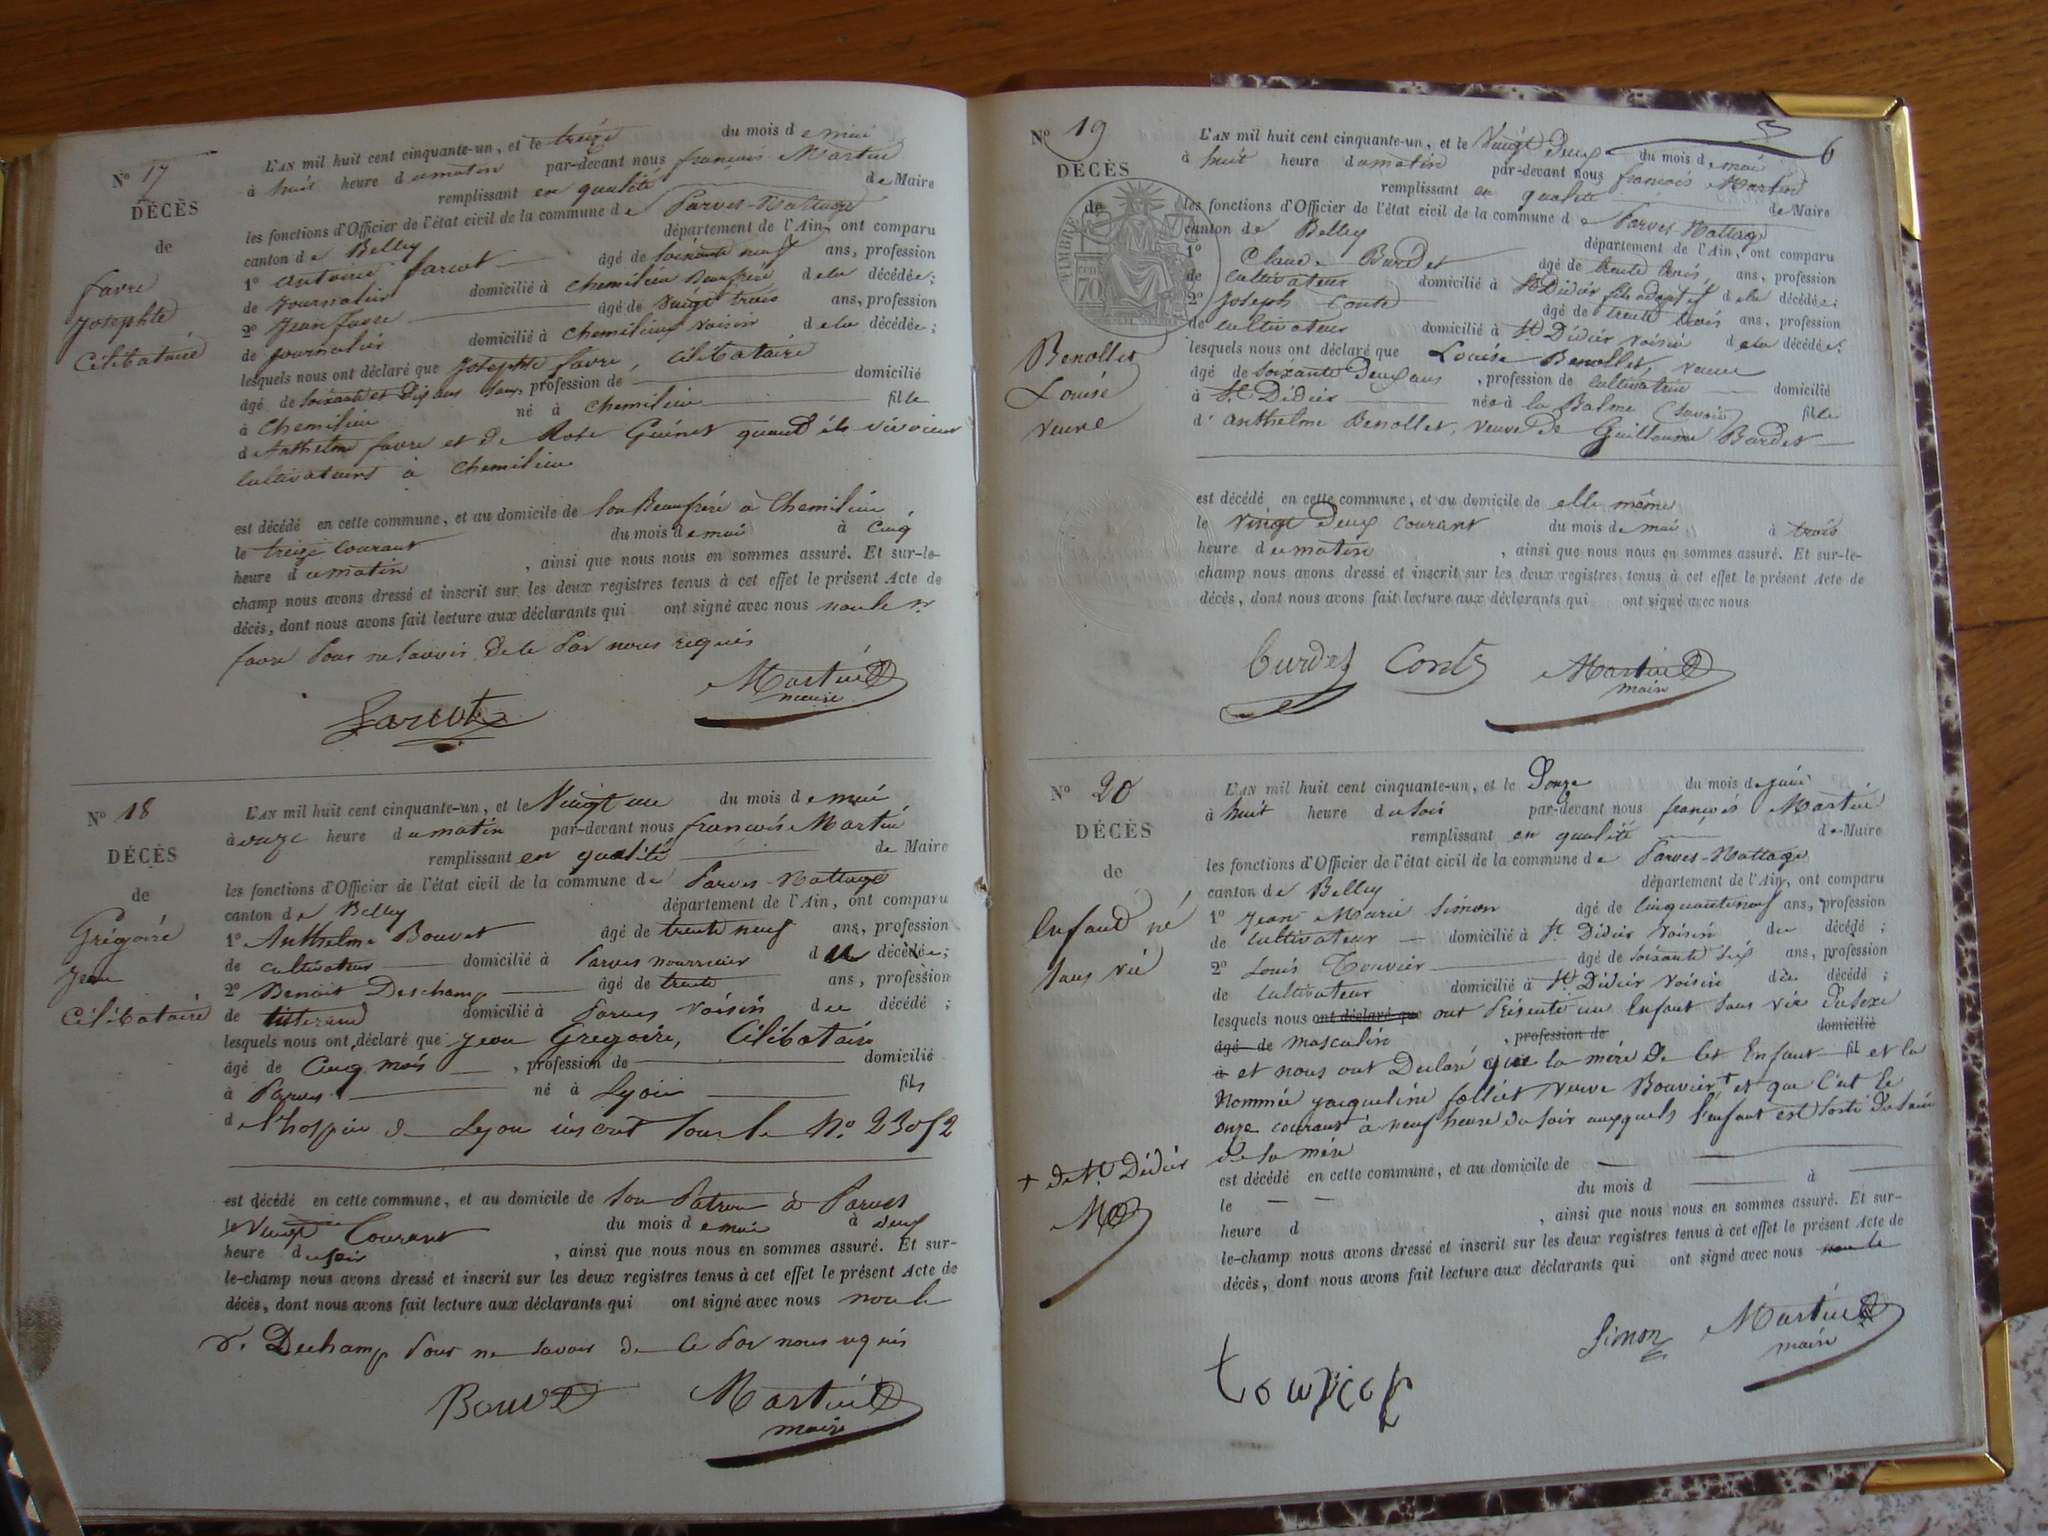 N° 17
DÉCÈS
de
favre
Josephte
Célibataire
L'AN mil huit cent cinquante-un, et le treize du mois de mai
à huit heure du matin par-devant nous françois Martin
remplissant en qualité de Maire
les fonctions d'Officier de l'état civil de la commune de Parves-Nattage
canton de Belley département de l'Ain, ont comparu
1° Antoine Parcot âgé de soixante neuf ans, profession
de journalier domicilié à Chemilieu Beaufrère de la décédée;
2° Jean favre âgé de vingt trois ans, profession
de journalier domicilié à Chemilieu voisin de la décédée;
lesquels nous ont déclaré que Josephte favre, Célibataire
âgé de soixante et dix ans sans profession de domicilié
à Chemilieu né à Chemilieu fille
d'Anthelme favre et de Rose Guinet quand ils vivoient
cultivateurs à Chemilieu
est décédé en cette commune, et au domicile de son Beaufrère à Chemilieu
le treize courant du mois de mai à cinq
heure du matin, ainsi que nous nous en sommes assuré. Et sur-le-
champ nous avons dressé et inscrit sur les deux registres tenus à cet effet le présent Acte de
décès, dont nous avons fait lecture aux déclarants qui ont signé avec nous non le Sr
favre Pour ne savoir de ce Par nous requis
Parcot Martin
maire
N° 18
DÉCÈS
de
Grégoire
Jean
Célibataire
L'AN mil huit cent cinquante-un, et le Vingt un du mois de mai
à onze heure du matin par-devant nous françois Martin
remplissant en qualité de Maire
les fonctions d'Officier de l'état civil de la commune de Parves-Nattage
canton de Belley département de l'Ain, ont comparu
1° Anthelme Bouvet âgé de trente neuf ans, profession
de cultivateur domicilié à Parves nourricier du décédée;
2° Benoit Deschamp âgé de trente ans, profession
de tisserand domicilié à Parves voisin du décédé;
lesquels nous ont déclaré que Jean Gregoire, Célibataire
âgé de Cinq mois, profession de domicilié
à Parves né à Lyon fils
de l'hospice de Lyon inscrit sous le N°
est décédé en cette commune, et au domicile de son Patron à Parves
le Vingt Courant du mois de mai à neuf
heure du soir, ainsi que nous nous en sommes assuré. Et sur-
le-champ nous avons dressé et inscrit sur les deux registres tenus à cet effet le présent Acte de
décès, dont nous avons fait lecture aux déclarants qui ont signé avec nous non le
Sr. Dechamp Pour ne savoir de ce Par nous requis
Bouvet Martin
maire
6
N° 19
DÉCÈS
de
TIMBRE
70
Benollet
Louise
veuve
L'AN mil huit cent cinquante-un, et le Vingt Deux du mois de mai
à huit heure du matin par-devant nous françois Martin
remplissant en qualité de Maire
les fonctions d'Officier de l'état civil de la commune de Parves-Nattage
canton de Belley département de l'Ain, ont comparu
1° Claude Burdet âgé de trente trois ans, profession
de cultivateur domicilié à St Didier fils adoptif de la décédée;
2° Joseph Conte âgé de trente trois ans, profession
de cultivateur domicilié à St Didier voisin de la décédée;
lesquels nous ont déclaré que Louise Benollet, veuve
âgé de soixante Deux ans, profession de cultivateur domicilié
à St Didier née à la Balme (Savoie) fille
d'Anthelme Benollet, veuve de Guillaume Burdet
est décédé en cette commune, et au domicile de elle même
le vingt Deux courant du mois de mai à trois
heure du matin, ainsi que nous nous en sommes assuré. Et sur-le-
champ nous avons dressé et inscrit sur les deux registres tenus à cet effet le présent Acte de
décès, dont nous avons fait lecture aux déclarants qui ont signé avec nous
Burdet Conte Martin
maire
N° 20
DÉCÈS
de
Enfant né
sans vie
L'AN mil huit cent cinquante-un, et le Douze du mois de juin
à huit heure du soir par-devant nous françois Martin
remplissant en qualité de Maire
les fonctions d'Officier de l'état civil de la commune de Parves-Nattage
canton de Belley département de l'Ain, ont comparu
1° Jean Marie Simon âgé de cinquante neuf ans, profession
de cultivateur domicilié à St Didier voisin du décédé;
2° Louis Touvier âgé de soixante six ans, profession
de cultivateur domicilié à St Didier voisin du décédé;
lesquels nous ont déclaré que ont Présenté un Enfant sans vie du sexe
âgé de masculin, profession de domicilié
à et nous ont Déclaré que la mère de cet Enfant fil et la
nommée jacqueline folliet veuve Bouvier + et que c'est le
onze courant à neuf heure du soir auxquels l'enfant est sorti du sein
de sa mère
+ de St. Didier
M
est décédé en cette commune, et au domicile de
le du mois d à
heure d, ainsi que nous nous en sommes assuré. Et sur-
le-champ nous avons dressé et inscrit sur les deux registres tenus à cet effet le présent Acte de
décès, dont nous avons fait lecture aux déclarants qui ont signé avec nous non le
Simon Martin
maire
touvier